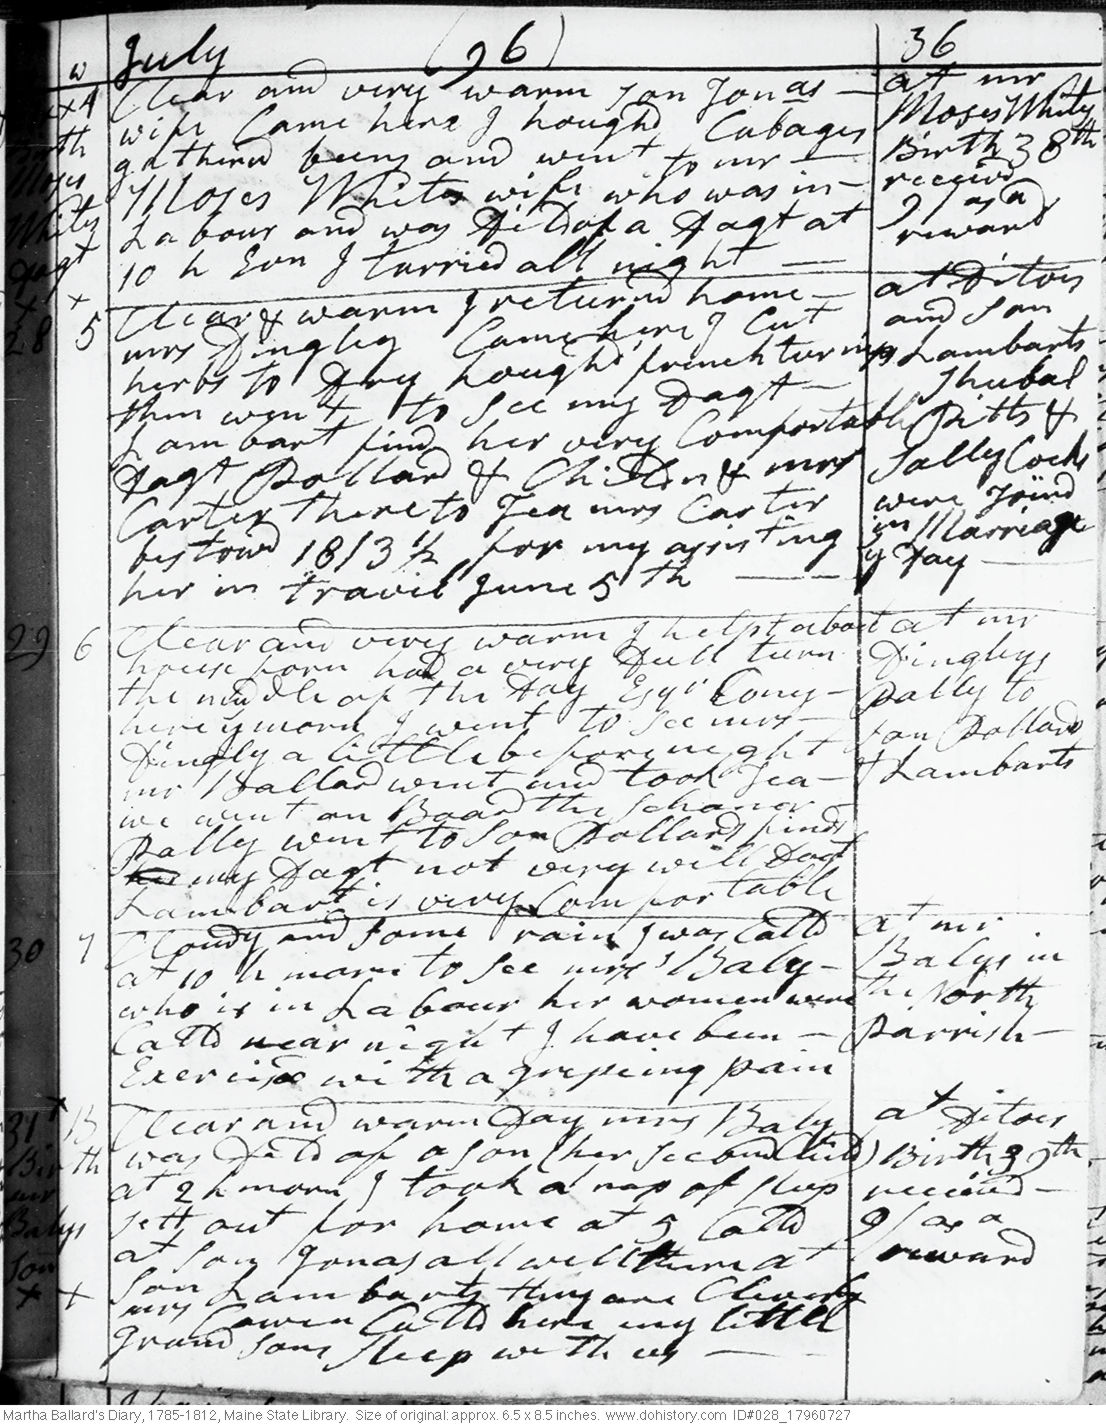 July (96) 36
w
x 4 Clear and very warm son Jonas — at mr
wife Came here I hough'd Cabages Moses Whites
gatherd beens and went to mr — Birth 38th
Moses Whites wife who was in — received
Labour and was Deld of a Dagt at 9/ as a
10 h Evn I tarried all night — reward
Birth
Moses
Whites
Dagt
x x
28 5 Clear & warm I returnd home — at Ditoes
mrs Dingley Came here I Cut and son
herbs to Dry hough'd french turnips Lambarts
then went to See my Dagt — Shubal
Lambart find her very Comfortable Pitts &
Dagt Pollard & Childn & mrs Sally Cocks
Carter there to Tea mrs Carter were Joind
bestowd 18/3 ½ for my assisting in Marriage
her in travil June 5th — y Day —
29 6 Clear and very warm I helpt about at mr
houseforn had a very Dull turn Dingleys
the middle of the Day Esqr Cony — Dally to
here y morn I went to see mrs — son Pollards
Dingly a little before night & Lambarts
mr Ballard went and took Tea —
we went on Board the Schaner —
Dally went to Son Pollards finds
my Dagt not very well Dagt
Lambart is very Comfortable
30 7 Cloudy and Some rain I was Calld at mr
at 10 h morn to See mrs Baly — Balys in
who is in Labour her women were the North
Calld near night I have been — Parrish —
Exercisd with a gripeing pain
31 x B Clear and warm Day mrs Baly at Ditoes
was Deld of a son (her second Child) Birth 39th
at 2 h morn I took a nap of sleep received —
sett out for home at 5 Calld 9/ as a
at Son Jonas all well there at reward
Son Lambarts they are Cleverly
mrs Cowen Calld here my little
grand sons sleep with us —
Birth
mr
Balys
Son
x x
Martha Ballard's Diary, 1785-1812, Maine State Library. Size of original: approx. 6.5 x 8.5 inches. www.dohistory.com ID#028_17960727